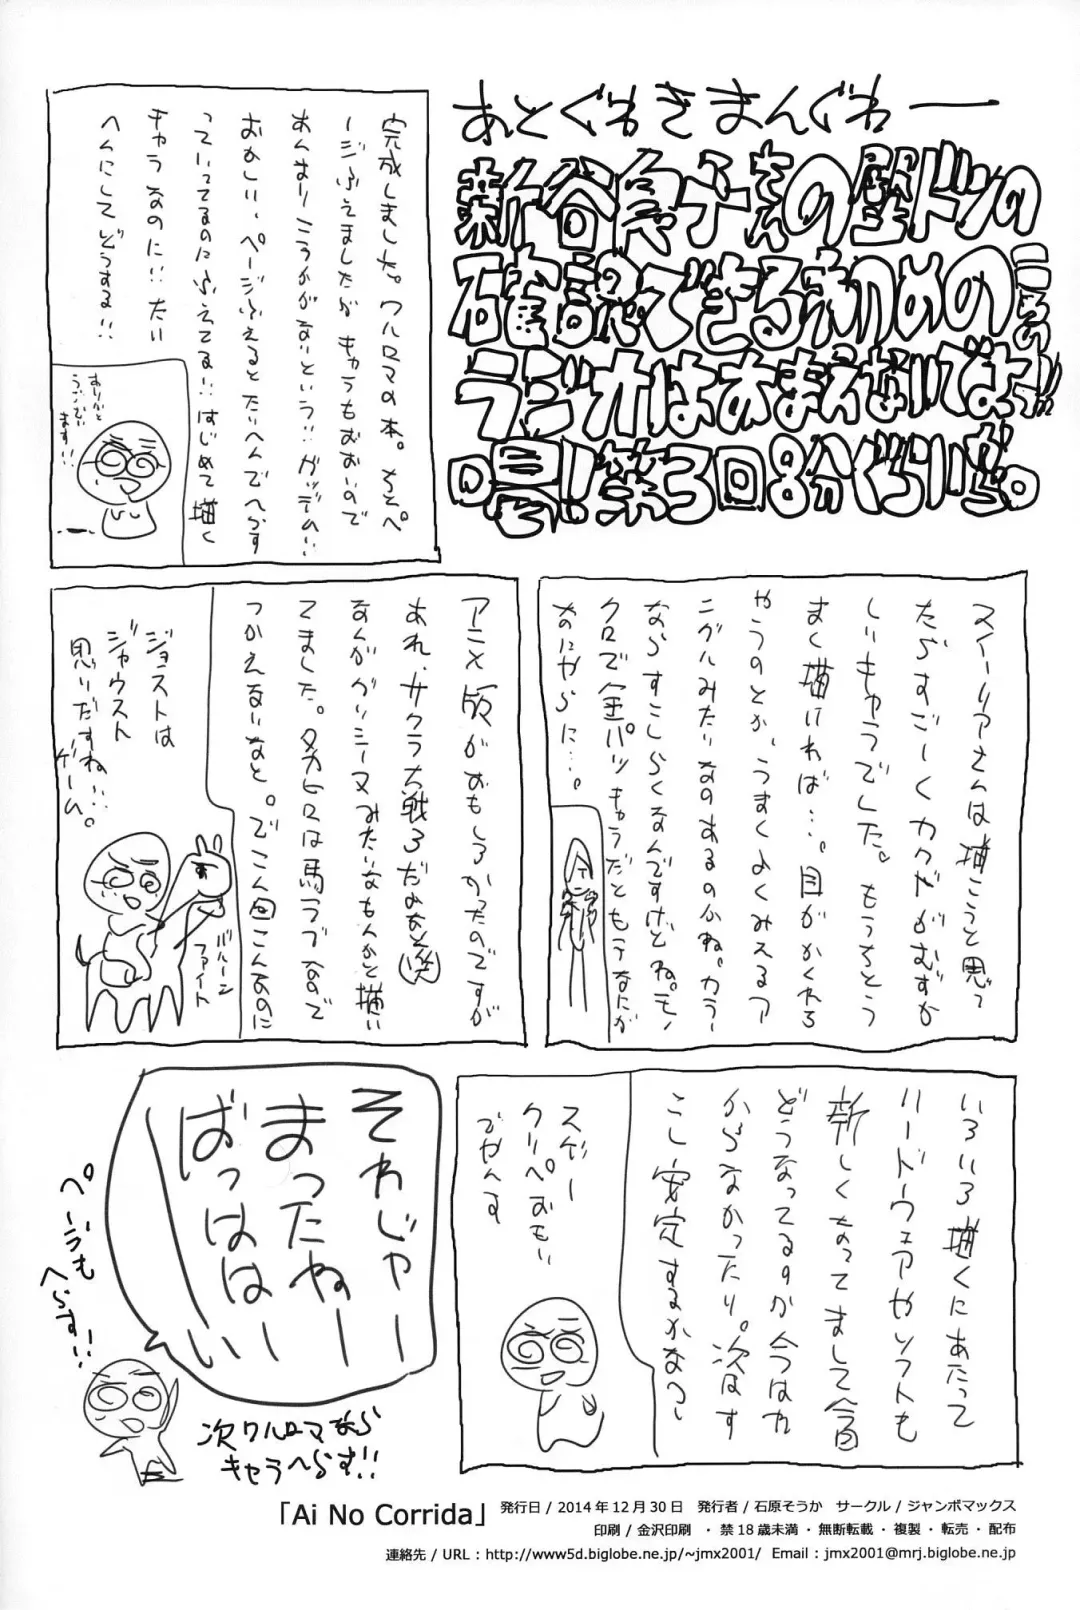 あとぐわきまんぐわー
新谷良子さんの壁ドンの
確認できる初めの
ラジオはおまえないてよ!!
の最!第3回8分ぐらいかな。
完成しました。ワルロマの本。ちとペ
ージふえましたが キャラもおおいので
あんまりこうかがないという!!ガッデム!!
おかしい、ページふえるとたいへんでへらす
っていってるのにふえてる!!はじめて描く
キャラなのに!!たい
へんにしてどうする!!
ありがとう
ございます!!
スイーリアさんは描こうと思って
たらすごーくカクゴがむずか
しいキャラでした。もうちとう
まく描ければ…。目がかくれる
やうのとか、うまくよくみえるア
ングルみたいなのあるのかね。カラー
ならすこしらくなんですけどね。モノ
クロで金パツキャラだともうなにが
なのにやらに…。
アニメ版がおもしろかったのですが
あれ、サクラ大戦3だよなあと笑
なんかグリシーヌみたいなもんかと描い
てました。タカヒロは馬ラブなので
つかえないなと。でこん回こんなのに
ジョストは
ジャウスト
思いだすね…
ゲーム。
バルーン
ファイト
いろいろ描くにあたって
ハードウェアやソフトも
新しくなってまして今回
どうなってるのか今はわ
からなかったり。次はす
こし安定するかなっ
スゲー
クリペおもい
でやんす
それじゃー
まったねー
ばっははーい
ページも
へらす!!
次ワルロマなら
キャラへらす!!
「Ai No Corrida」 発行日 / 2014年12月30日 発行者 / 石原そうか サークル / ジャンボマックス
印刷 / 金沢印刷 ・禁18歳未満・無断転載・複製・転売・配布
連絡先 / URL : http://www5d.biglobe.ne.jp/~jmx2001/ Email : jmx2001@mrj.biglobe.ne.jp